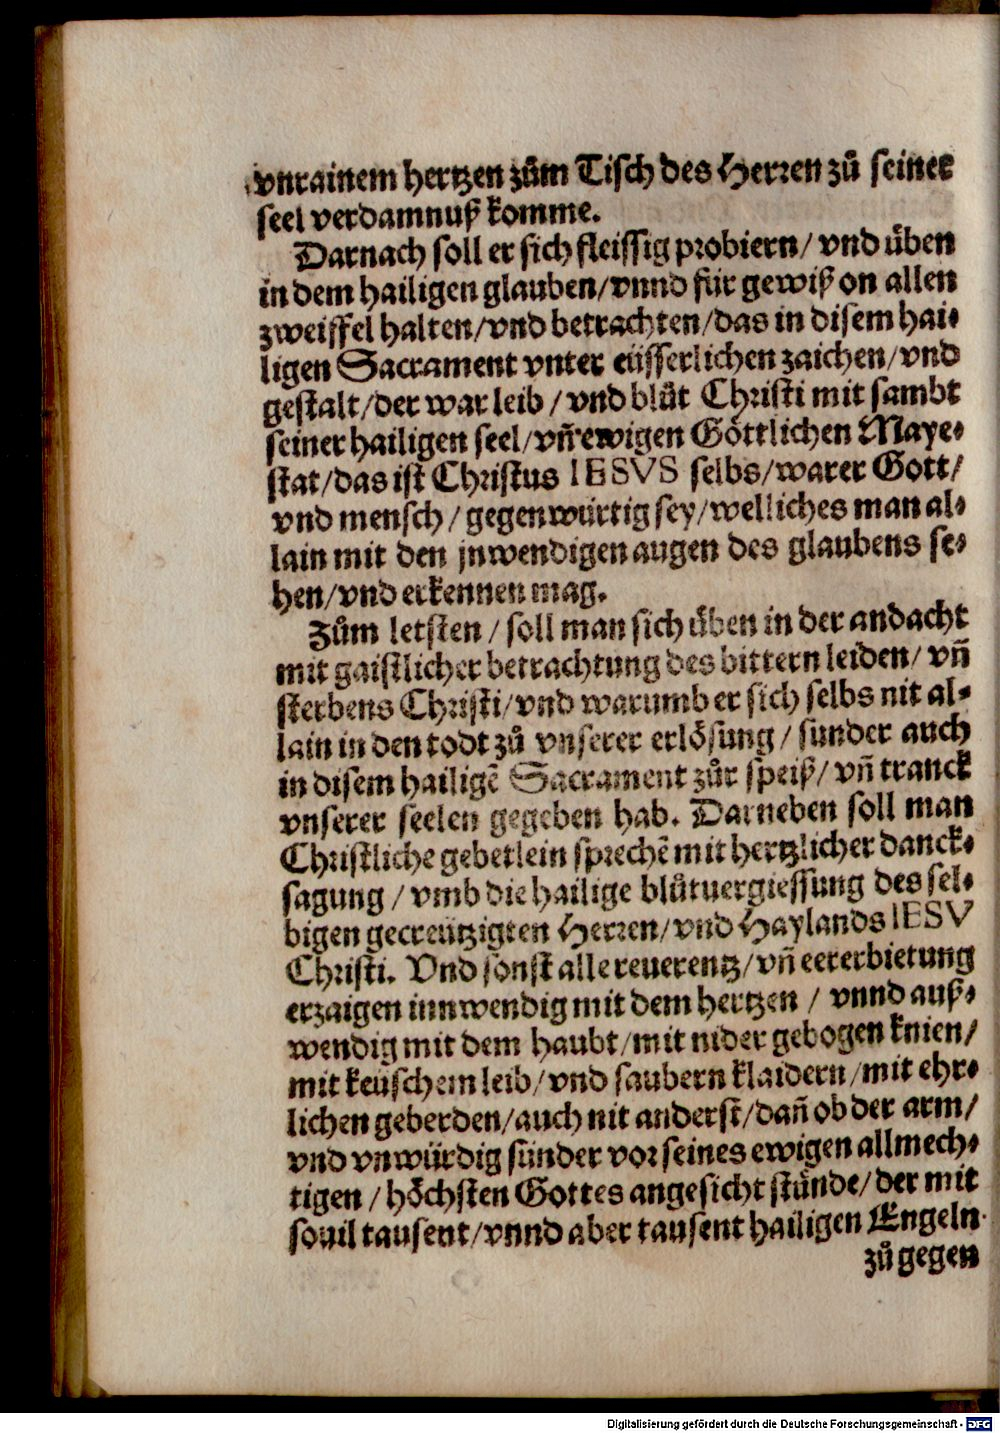 vnrainem hertzen zům Tisch des Herren zů seiner
seel verdamnuß komme.
Darnach soll er sich fleissig probiern/ vnd üben
in dem hailigen glauben/vnnd für gewiß on allen
zweiffel halten/vnd betrachten/das in disem hai⸗
ligen Sacrament vnter eüsserlichen zaichen/vnd
gestalt/der war leib / vnd blůt Christi mit sambt
seiner hailigen seel/vñ ewigen Göttlichen Maye⸗
stat/das ist Christus IESVS selbs/warer Gott/
vnd mensch / gegenwürtig sey/welliches man al⸗
lain mit den jnwendigen augen des glaubens se⸗
hen/vnd erkennen mag.
Zům letsten / soll man sich üben in der andacht
mit gaistlicher betrachtung des bittern leiden/ vñ
sterbens Christi/vnd warumb er sich selbs nit al⸗
lain in den todt zů vnserer erlösung / sunder auch
in disem hailigẽ Sacrament zůr speiß/ vñ tranck
vnserer seelen gegeben hab. Darneben soll man
Christliche gebetlein sprechẽ mit hertzlicher danck⸗
sagung / vmb die hailige blůtuergiessung des sel⸗
bigen gecreützigten Herren/vnd Haylands IESV
Christi. Vnd sonst alle reuerentz/vñ eererbietung
erzaigen innwendig mit dem hertzen / vnnd auß⸗
wendig mit dem haubt/mit nider gebogen knien/
mit keüschem leib/vnd saubern klaidern/mit ehr⸗
lichen geberden/auch nit anderst/dañ ob der arm/
vnd vnwürdig sünder vor seines ewigen allmech⸗
tigen / höchsten Gottes angesicht stünde/der mit
souil tausent/vnnd aber tausent hailigen Engeln
zů gegen
Digitalisierung gefördert durch die Deutsche Forschungsgemeinschaft - DFG